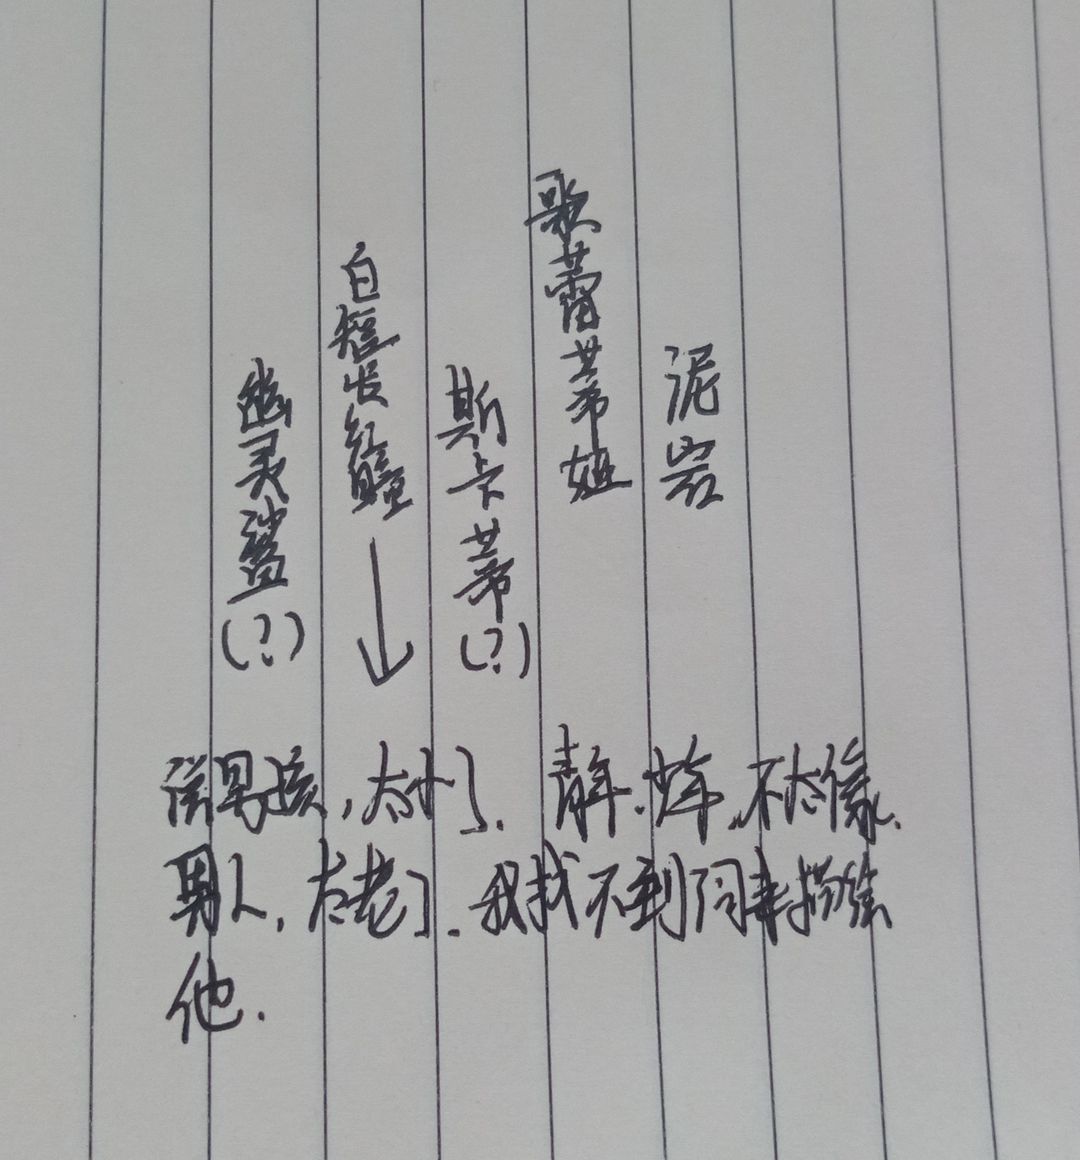 幽灵鲨(?)
白短发鳣
斯卡蒂(?)
歌蕾蒂娅
泥岩
说男孩,太小了. 青年.少年,不太像.
男人,太老了.我找不到词来描绘
他.